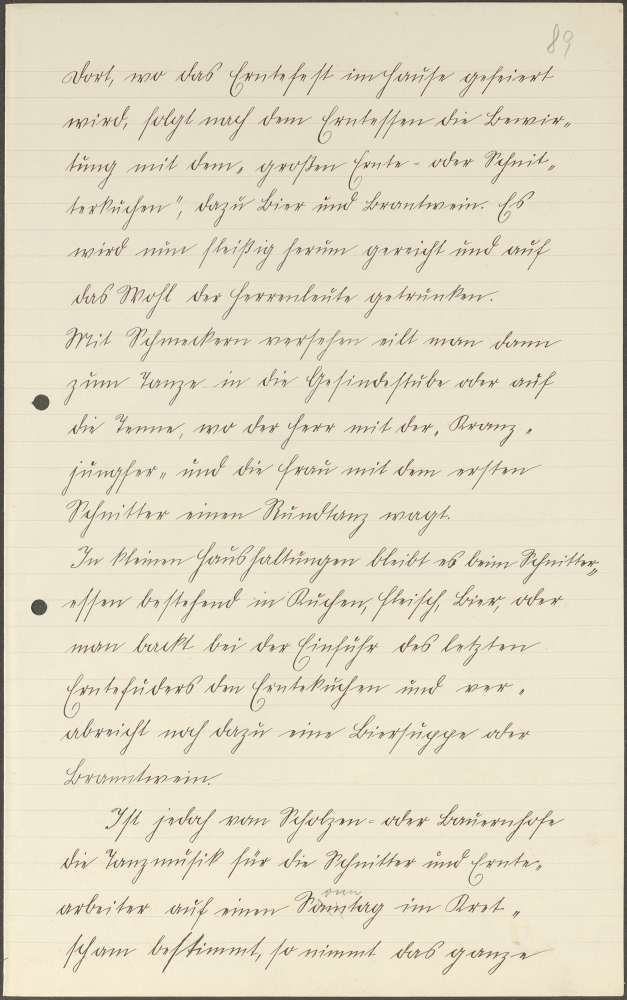 89
Dort, wo das Erntefest im Hause gefeiert
wird, folgt nach dem Erntessen die Bewir„
tung mit dem „ großen Ernte - oder Schnit„
terkuchen", dazu Bier und Brantwein. Es
wird nun fleißig herum gereicht und auf
das Wohl der Herrenleute getrunken.
Mit Schmeckern versehen eilt man dann
zum Tanze in die Gesindestube oder auf
die Tenne, wo der Herr mit der „ Kranz„
jungfer „ und die Frau mit dem ersten
Schnitter einen Rundtanz wagt.
In kleinen Haushaltungen bleibt es beim Schnitter„
essen bestehend in Kuchen, Fleisch, Bier, oder
man backt bei der Einfuhr des letzten
Erntefuders den Erntekuchen und ver„
abreicht noch dazu eine Biersuppe oder
Branntwein.
Ist jedoch vom Scholzen= oder Bauernhofe
die Tanzmusik für die Schnitter und Ernte„
arbeiter auf einen Sonntag im Kret„
scham bestimmt, so nimmt das ganze